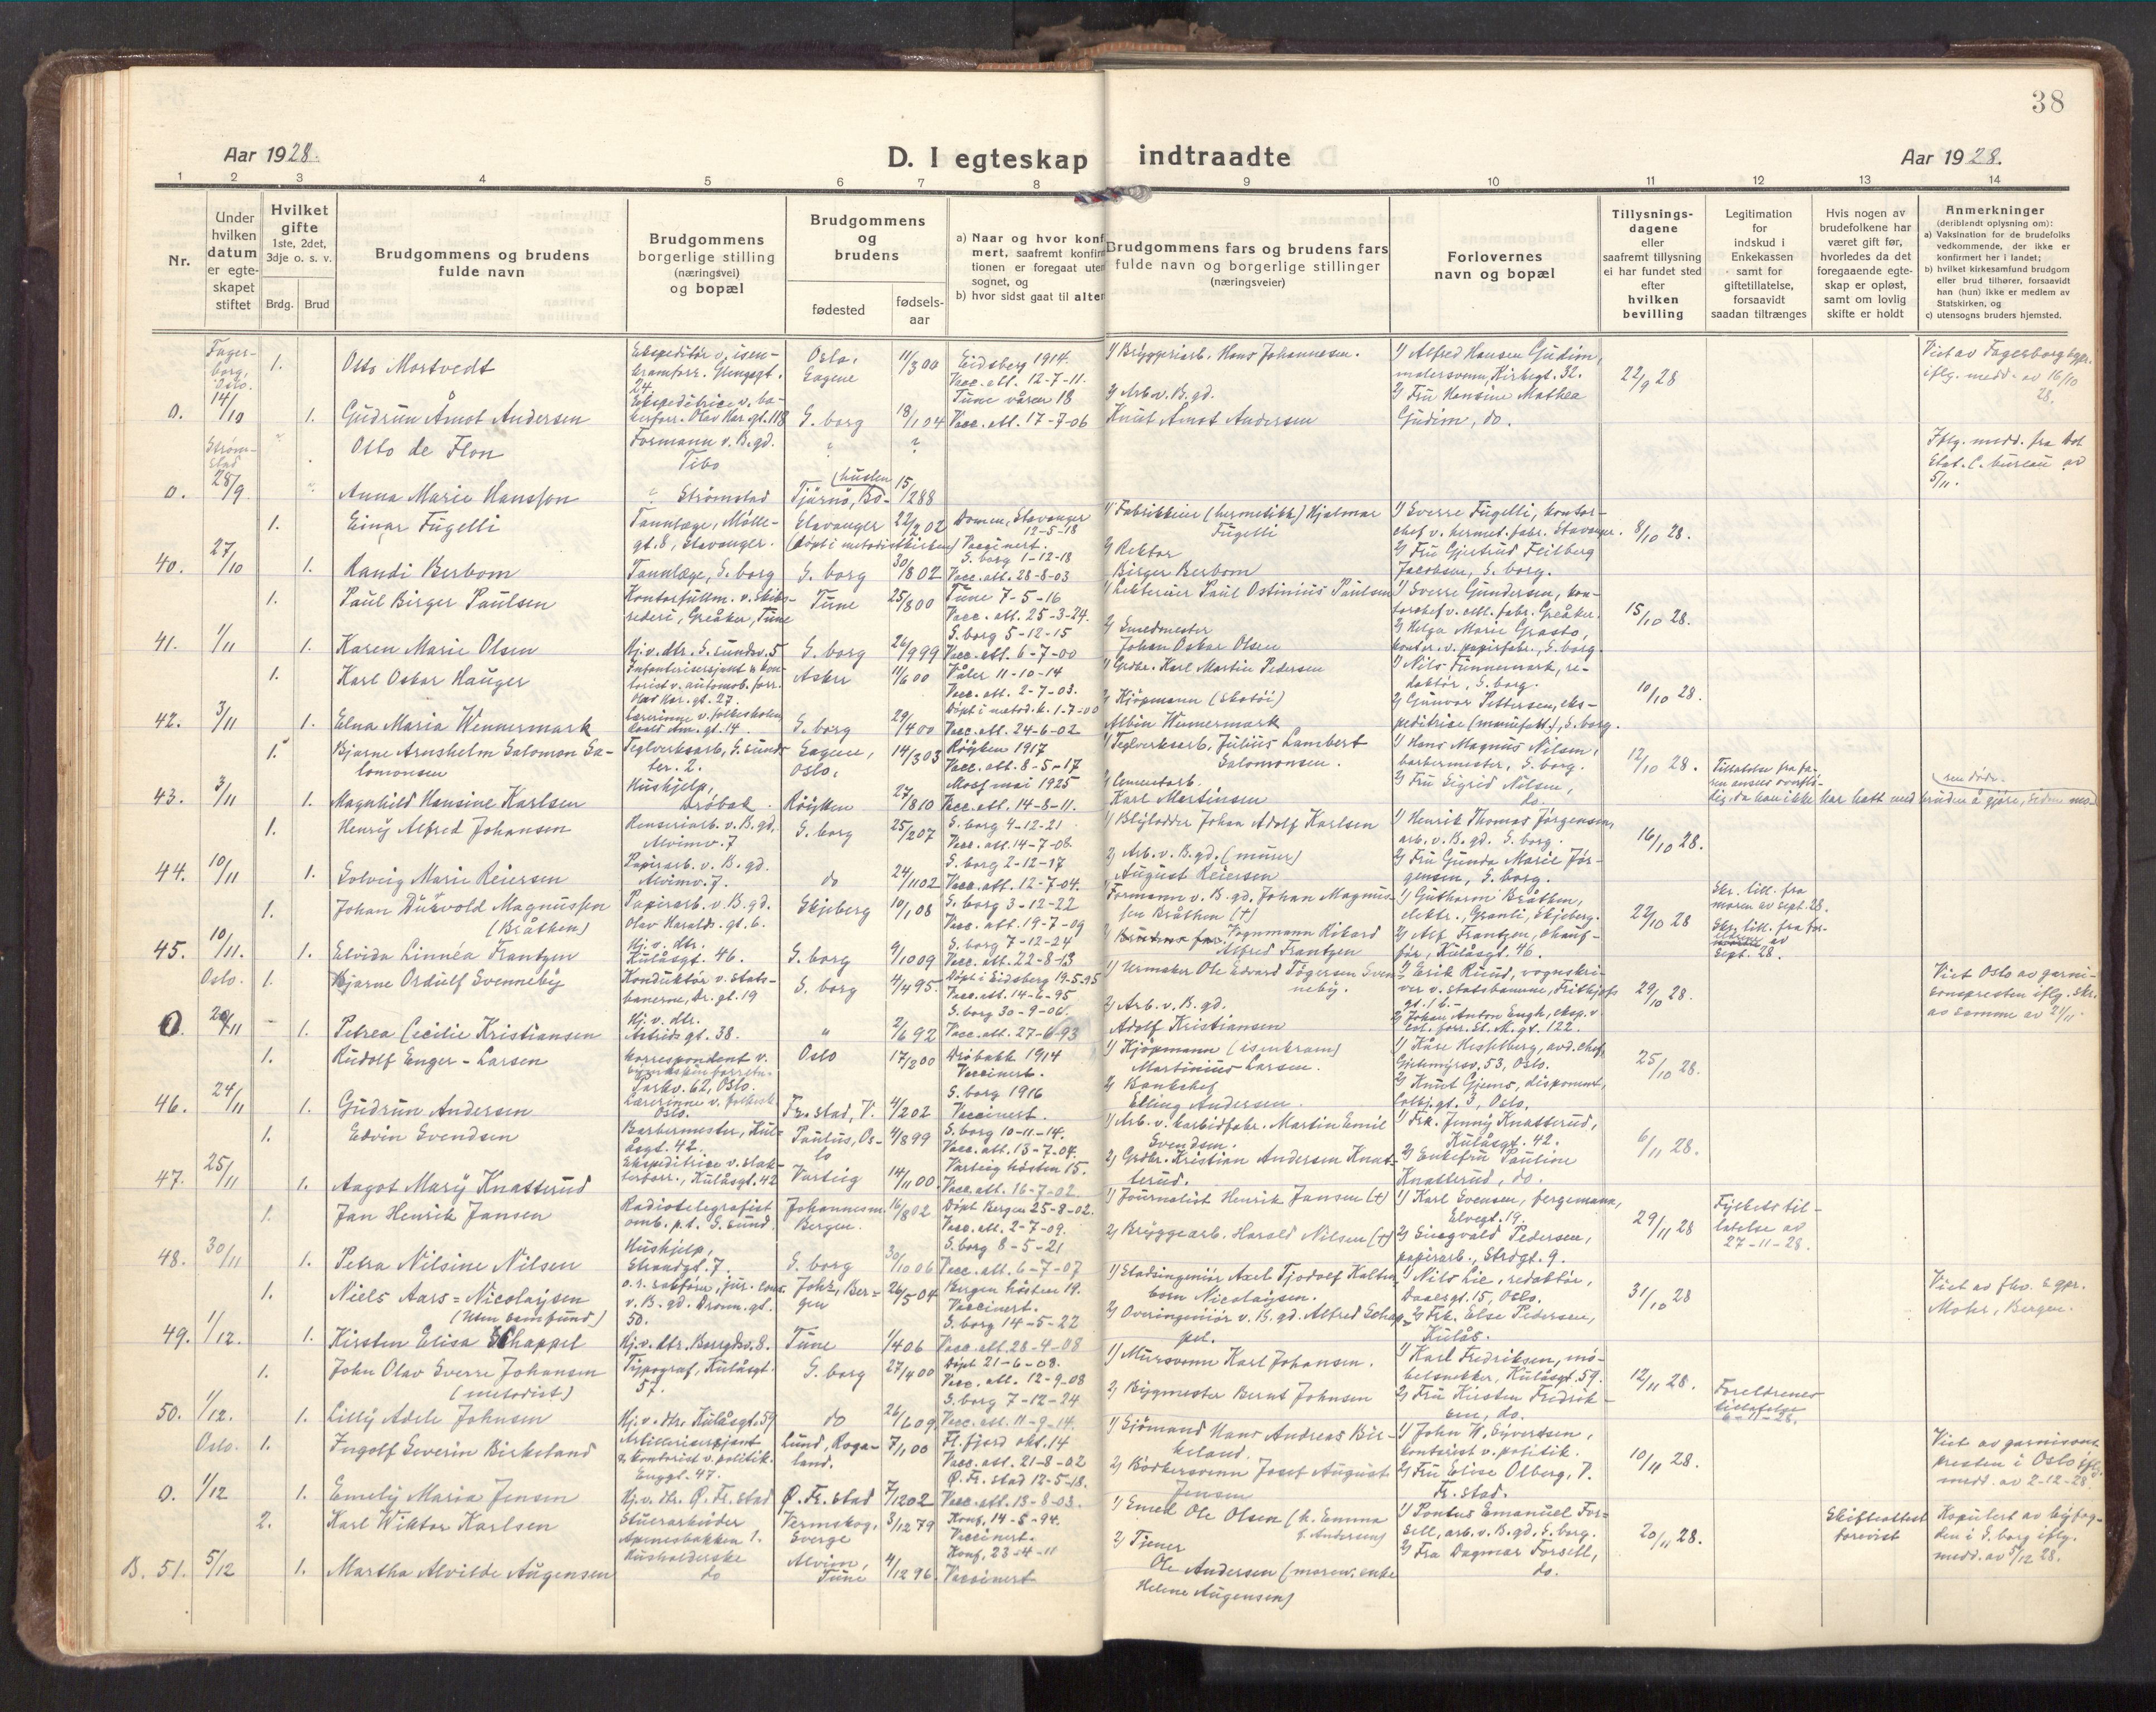 38
Aar 1928.
D. I egteskap indtraadte
Aar 1928.
1 2 3 4 5 6 7 8 9 10 11 12 13 14
Nr.
Under hvilken datum er egteskapet stiftet
Hvilket gifte
1ste, 2det, 3dje o. s. v.
Brdg. Brud
Brudgommens og brudens fulde navn
Brudgommens borgerlige stilling (næringsvei) og bopæl
Brudgommens og brudens
fødested
fødselsaar
a) Naar og hvor konf
mert, saafremt konfirm
tionen er foregaat uten
sognet, og
b) hvor sidst gaat til alter
Brudgommens fars og brudens fars
fulde navn og borgerlige stillinger
(næringsveier)
Forlovernes
navn og bopæl
Tillysnings-
dagene
eller
saafremt tillysning
ei har fundet sted
efter
hvilken
bevilling
Legitimation
for
indskud i
Enkekassen
samt for
giftetillatelse,
forsaavidt
saadan tiltrænges
Hvis nogen av
brudefolkene har
været gift før,
hvorledes da det
foregaaende egte-
skap er opløst,
samt om lovlig
skifte er holdt
Anmerkninger
(deriblandt oplysning om):
a) Vaksination for de brudefolks
vedkommende, der ikke er
konfirmert her i landet;
b) hvilket kirkesamfund brudgom
eller brud tilhører, forsaavidt
han (hun) ikke er medlem av
Statskirken, og
c) utensogns bruders hjemsted.
Fagerborg, Oslo. 14/10
1. Otto Mortvedt
Ekspeditør v. isenkramforr. Glengsgt. 24.
Oslo, Sagene 11/3 00
Eidsberg 1914.
Vacc. att. 12-7-11.
1) Bryggeriarb. Hans Johannesen.
1) Alfred Hansen Gudim, malersvenn, Kirkegt. 32.
22/9 28
Viet av Fagerborg sgpr. iflg. medd. av 16/10 28.
0. 1. Gudrun Åmot Andersen
Ekspeditrice v. bakerforr. Olav Har. gt. 118
S. borg 18/1 04
Tune våren 18
Vacc. att. 17-7-06
2) Arb. v. B. gd. Knut Åmot Andersen
2) Fru Hansine Mathea Gudim, do.
Strømstad 28/9
Otto de Flon
Formann v. B. gd. Tibo
? ?
Iflg. medd. fra Det Stat. C. bureau av 5/11.
0. Anna Marie Hansson
? Strømstad
Tjärnö, Bohuslen 15/2 88
1. Einar Fugelli
Tannlæge, Mølle-gt. 8, Stavanger.
Stavanger 22/2 02
(Døpt i metodistkirken)
Domen, Stavanger 12-5-18
Vaccinert.
1) Fabrikkeier (hermetikk) Hjalmar Fugelli
1) Sverre Fugelli, kontorchef v. hermet. fabr. Stavanger.
8/10 28.
40. 27/10 1. Randi Berbom
Tannlæge, S. borg
S. borg 30/8 02
S. borg 1-12-18
Vacc. att. 28-8-03
2) Rektor Birger Berbom
2) Fru Gjertrud Feilberg Jacobsen, S. borg.
1. Paul Birger Paulsen
Kontorfullm. v. Skibsrederi, Greåker, Tune
Tune 25/8 00
Tune 7-5-16
Vacc. att. 25-3-24.
1) Lektereier Paul Ostinius Paulsen
1) Sverre Gundersen, kontorchef v. cell. fabr. Greåker.
15/10 28.
41. 1/11 1. Karen Marie Olsen
Hj. v. dtr. S. sundsv. 5
S. borg 26/9 99
S. borg 5-12-15
Vacc. att. 6-7-00
2) Smedmester Johan Oskar Olsen
2) Helga Marie Grasto, kontor. v. papirfabr., S. borg.
1. Karl Oskar Hauger
Infanterisersjant & kontorist v. automob. forr. Olav Har. gt. 27.
Asker 11/6 00
Våler 11-10-14
Vacc. att. 2-7-03.
1) Grdbr. Karl Martin Pedersen
1) Nils Tunnemark, redaktør, S. borg.
10/10 28.
42. 3/11 1. Elna Maria Wennermark
Lærerinne v. folkeskolen Roald Am. gt. 14.
S. borg 29/4 00
Døpt i metod. k. 1-7-00
Vacc. att. 24-6-02
2) Kjøpmann (skotøi) Albin Wennermark
2) Gunvor Pettersen, ekspeditrise (manufakt.), S. borg.
1. Bjarne Arnsholm Salomon Salomonsen
Teglverksarb, S. sundster. 2.
Sagene, Oslo, 14/3 03
Røyken 1917
Vacc. att. 8-5-17
1) Teglverksarb, Julius Lambert Salomonsen.
1) Hans Magnus Nilsen, barbermester, S. borg.
12/10 28.
Tillatelse fra faren ansees overflødig, da han ikke har hatt med bruden å gjøre, siden moren døde.
43. 3/11 1. Magnhild Hansine Karlsen
Hushjelp, Drøbak
Røyken 27/8 10
Moss mai 1925
Vacc. att. 14-8-11.
2) Cementarb. Karl Martinsen
2) Fru Sigrid Nilsen, do.
1. Henry Alfred Johansen
Renseriarb. v. B. gd, Alvimv. 7
S. borg 25/2 07
S. borg 4-12-21
Vacc. att. 14-7-08
1) Blylodder Johan Adolf Karlsen
1) Henrik Thomas Jørgensen, arb. v. B. gd. S. borg.
16/10 28.
44. 10/11 1. Solveig Marie Reiersen
Papirarb. v. B. gd. Alvimv. 7.
do 24/11 02
S. borg 2-12-17
Vacc. att. 12-7-04.
2) Arb. v. B. gd. (murer) August Reiersen
2) Fru Gunda Marie Jørgensen, S. borg.
1. Johan Durvold Magnussen (Bråthen)
Papirarb. v. B. gd. Olav Haralds. gt. 6.
Skjeberg 10/1 08
S. borg 3-12-22
Vacc. att. 19-7-09
1) Formann v. B. gd. Johan Magnussen Bråthen (+)
1) Guthorm Bråthen, elektr., Granli, Skjeberg.
22/10 28
Skr. till. fra moren av sept. 28.
45. 10/11. 1. Elvida Linnéa Frantzen
Hj. v. dtr. Kulåsgt. 46.
S. borg 9/10 09
S. borg 7-12-24
Vacc. att. 22-8-13
2) Vognmann Rikard Alfred Frantzen
2) Alf Frantzen, chauffør, Kulåsgt. 46.
Skr. till. fra foreldrene av Sept. 28.
Oslo. 1. Bjarne Ordulf Svenneby
Konduktør v. statsbanerne, Dr. gt. 19
S. borg 4/4 95.
Døpt i Eidsberg 19-5-95
Vacc. att. 14-6-95
1) Urmaker Ole Edvard Tøgersen Svenneby.
1) Erik Ruud, vognskriver v. statsbanene, Frithjofs gt. 16
29/10 28.
Viet Oslo av garnisonspresten iflg. skr. av samme av 24/11
0. 24/11 1. Petrea Cecilie Kristiansen
Hj. v. dtr. Astridsgt. 38.
" 2/6 92
S. borg 30-9-06.
Vacc. att. 27-6-93
2) Arb. v. B. gd. Adolf Kristiansen
2) Johan Anton Engh, eksp. v. col. forr. St. M. gt. 122.
1. Rudolf Enger-Larsen
Korrespondent v. Parkv. 62, Oslo.
Oslo 17/2 00
Drøbakk 1914
Vaccinert.
1) Kjøpmann (isenkram) Martinius Larsen.
1) Kåre Hesselberg, avd. chef, Gjetemyrsv. 53, Oslo.
25/10 28.
46. 24/11 1. Gudrun Andersen
Lærerinne v. folkesk. Oslo.
Fr. stad, V. 4/2 02
S. borg 1916
Vaccinert.
2) Bankchef Elling Andersen.
2) Knut Gjems, disponent, Colbj. gt. 3, Oslo.
1. Edvin Svendsen
Barbermester, Kulåsgt. 42.
Paulus, Oslo 4/8 99
S. borg 10-11-14.
Vacc. att. 13-7-04.
1) Arb. v. karbidfabr. Martin Emil Svendsen.
1) Frk. Jenny Knatterud, Kulåsgt. 42.
6/11 28.
47. 25/11 1. Aagot Mary Knatterud
Ekspeditrice v. slakterforr., Kulåsgt. 42
Varteig 14/11 00.
Varteig høsten 15.
Vacc. att. 16-7-02.
2) Grdbr. Kristian Andersen Knatterud.
2) Enkefru Pauline Knatterud, do.
1. Jan Henrik Jansen
Radiotelegrafist omb. p.t. S. sund.
Johannesm. Bergen. 16/8 02
Døpt Bergen 25-8-02.
Vacc. att. 2-7-09.
1) Journalist Henrik Jansen (+)
1) Karl Svensen, fergemann, Elvegt. 19.
29/11 28
Fylkets tillatelse av 27-11-28.
48. 30/11 1. Petra Nilsine Nilsen
Hushjelp, Strandgt. 7.
S. borg 30/10 06
S. borg 8-5-21
Vacc. att. 6-7-07
2) Bryggearb. Harald Nilsen (+)
2) Singvald Pedersen, papirarb., Strdgt. 9.
1. Niels Aars=Nicolaysen (Uten samfund)
o. r. sakfører, jur. cons. v. B. gd. Dronn. gt. 50.
Johs, Bergen 26/5 04
Bergen høsten 19.
Vaccinert.
1) Stadsingeniør Axel Tjodolf Kaltenborn Nicolaysen.
1) Nils Lie, redaktør, Daasgt. 15, Oslo.
31/10 28
Viet av fhv. sgpr. Mohr, Bergen.
49. 1/12. 1. Kirsten Elisa Schappel
Hj. v. dtr. Borgdsv. 8.
Tune 1/4 06
S. borg 14-5-22
Vacc. att. 28-4-08
2) Overingeniør v. B. gd. Alfred Schappel.
2) Frk. Else Pedersen, Kulås.
1. John Olav Sverre Johansen (metodist)
Typograf, Kulåsgt. 57.
S. borg 27/4 00
Døpt 21-6-08.
Vacc. att. 12-9-08
1) Mursvenn Karl Johansen.
1) Karl Fredriksen, møbelsnekker, Kulåsgt. 59.
12/11 28.
Foreldrenes tillatelse 6-11-28.
50. 1/12. 1. Lilly Adele Johnsen
Hj. v. dtr. Kulåsgt. 59
do 26/6 09
S. borg 7-12-24
Vacc. att. 11-9-14.
2) Bygmester Bernt Johnsen
2) Fru Kirsten Fredriksen, do.
Oslo. 1. Ingolf Severin Birkeland
Artillerisersjant & kontorist v. politik. Enggt. 47.
Lund, Rogaland. 7/1 00
Fl. fjord okt. 14
Vacc. att. 21-8-02
1) Sjømand Hans Andreas Birkeland.
1) John W. Syvertsen, kontorist v. politik.
10/11 28.
Viet av garnisonspresten i Oslo iflg. medd. av 2-12-28
0. 1/12 1. Emely Maria Jensen
Hj. v. dtr. Ø. Fr. stad
Ø. Fr. stad 7/12 02
Ø. Fr. stad 12-5-18.
Vacc. att. 13-8-03.
2) Bødkersvenn Josef August Jensen
2) Fru Elise Olberg, V. Fr. stad.
2. Karl Wiktor Karlsen
Stuerarbeider Apenesbakken 1.
Vermskog, Sverge 3/12 79
Konf. 14-5-94.
Vaccinert.
1) Smed Ole Olsen (h. Emma f. Andersen)
1) Pontus Emanuel Forsell, arb. v. B. gd. S. borg.
20/11 28.
Skifteattest forevist
Kopulert av byfogden i S. borg iflg. medd. av 5/12 28.
B. 51. 5/12 1. Martha Alvilde Augensen
Husholderske do
Alvim, Tune 4/12 96.
Konf. 23-4-11
Vaccinert
2) Tjener Ole Andersen (moren: enke Helene Augensen)
2) Fru Dagmar Forsell, do.